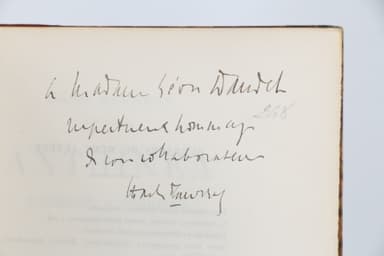 à Madame Léon Daudet
respectueux hommage
de son collaborateur
268